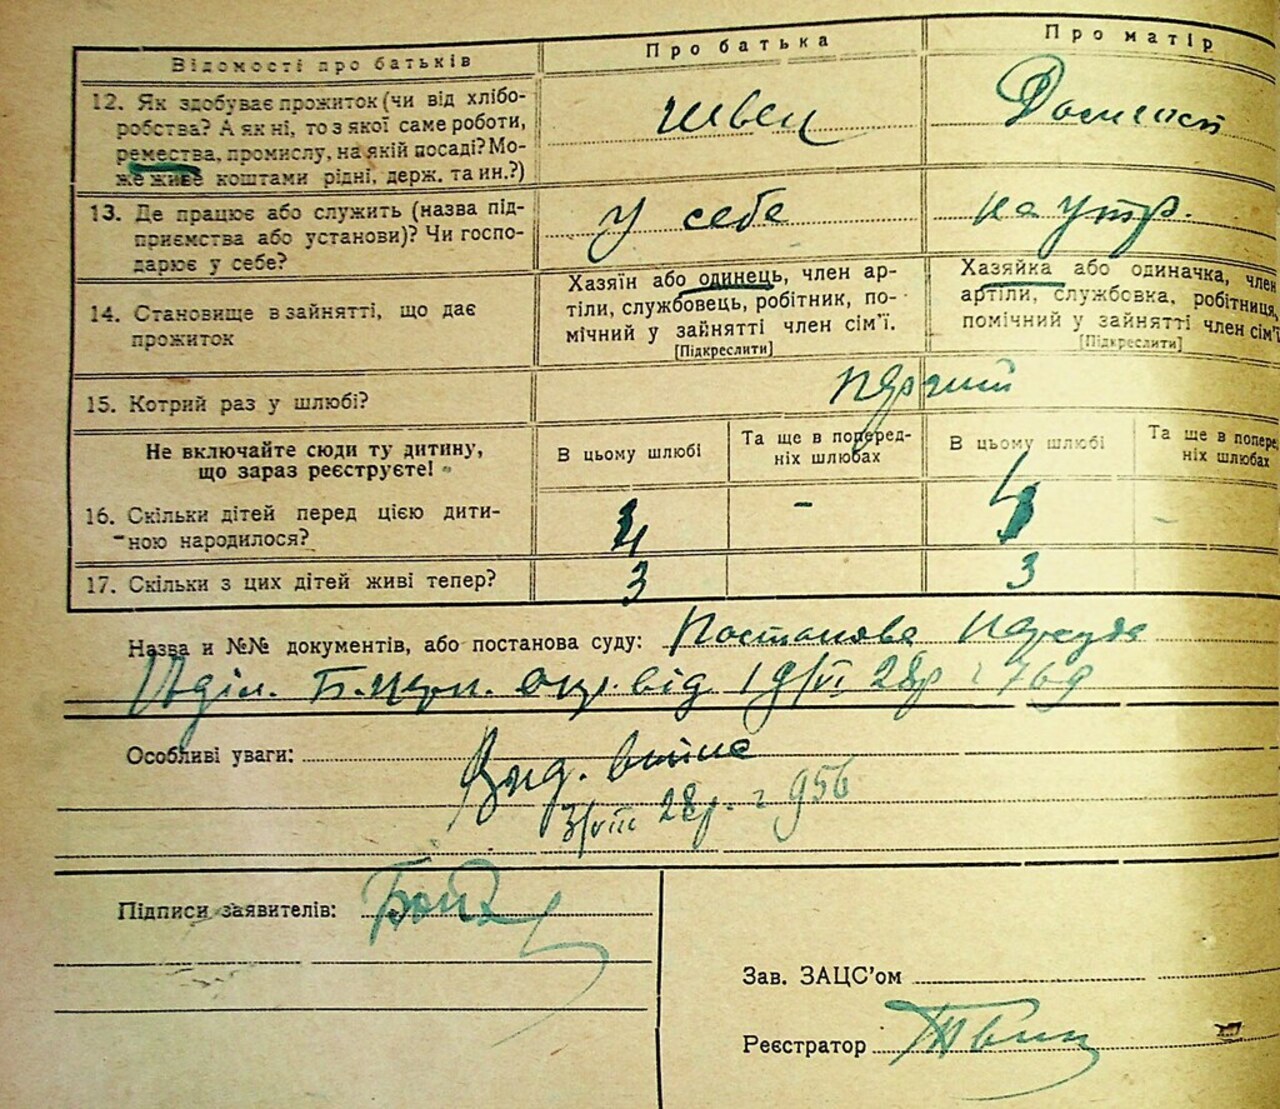 Відомості про батьків
Про батька
Про матір
12. Як здобуває прожиток (чи від хлібо-
робства? А як ні, то з якої саме роботи,
ремества, промислу, на якій посаді? Мо-
же живе коштами рідні, держ. та ин.?)
швец
Домгосп
13. Де працює або служить (назва під-
приємства або установи)? Чи госпо-
дарює у себе?
у себе
на утр.
14. Становище в зайнятті, що дає
прожиток
Хазяїн або одинець, член ар-
тіли, службовець, робітник, по-
мічний у зайнятті член сім'ї.
[Підкреслити]
Хазяйка або одиначка, член
артіли, службовка, робітниця,
помічний у зайнятті член сім'ї
[Підкреслити]
15. Котрий раз у шлюбі?
Не включайте сюди ту дитину,
що зараз реєструєте!
В цьому шлюбі
Та ще в поперед-
ніх шлюбах
В цьому шлюбі
Та ще в попере
ніх шлюбах
16. Скільки дітей перед цією дити-
ною народилося?
4
-
4
-
17. Скільки з цих дітей живі тепер?
3
3
Назва и №№ документів, або постанова суду: Постанова Нарсуда
діл. Б.церк. окр. від 19/VI 28р г 769
Особливі уваги:
Вид. витяг
3/VIII 28р. г 956
Підписи заявителів:
Зав. ЗАЦС'ом
Реєстратор